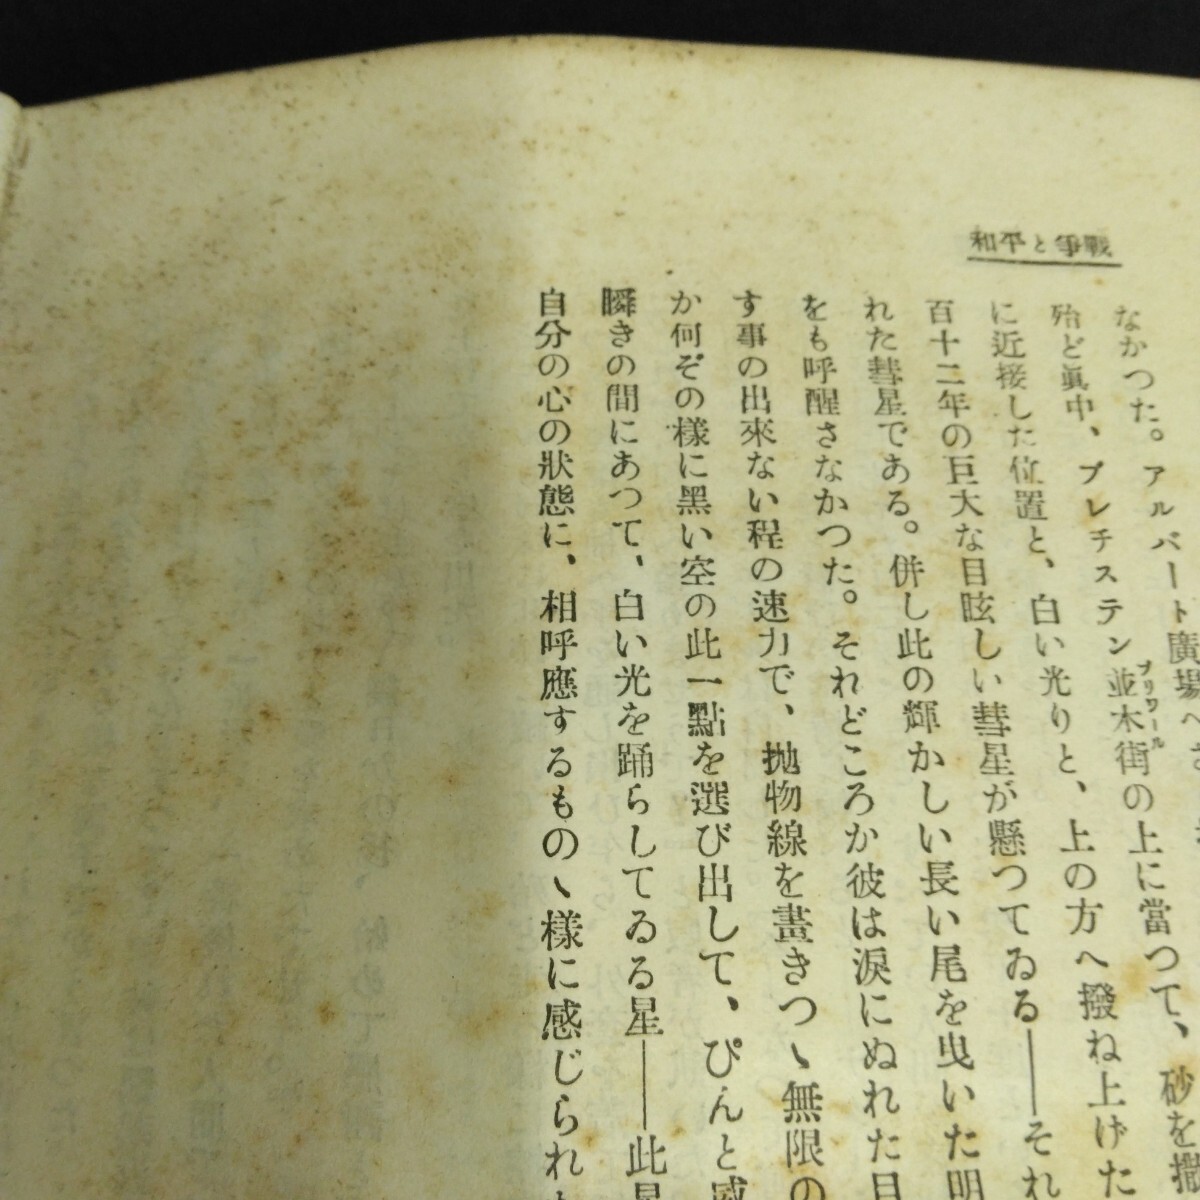 和平と爭戰
なかつた。アルバート廣場へさ
殆ど眞中、プレチステン並木街の上に當つて、砂を撒
ブリワール
に近接した位置と、白い光りと、上の方へ撥ね上げた
百十二年の巨大な目眩しい彗星が懸つてゐる——それ
れた彗星である。併し此の輝かしい長い尾を曳いた明
をも呼醒さなかつた。それどころか彼は淚にぬれた目
す事の出來ない程の速力で、拋物線を畫きつゝ無限の
か何ぞの樣に黑い空の此一點を選び出して、ぴんと威
瞬きの間にあつて、白い光を踊らしてゐる星——此星
自分の心の狀態に、相呼應するものゝ樣に感じられ